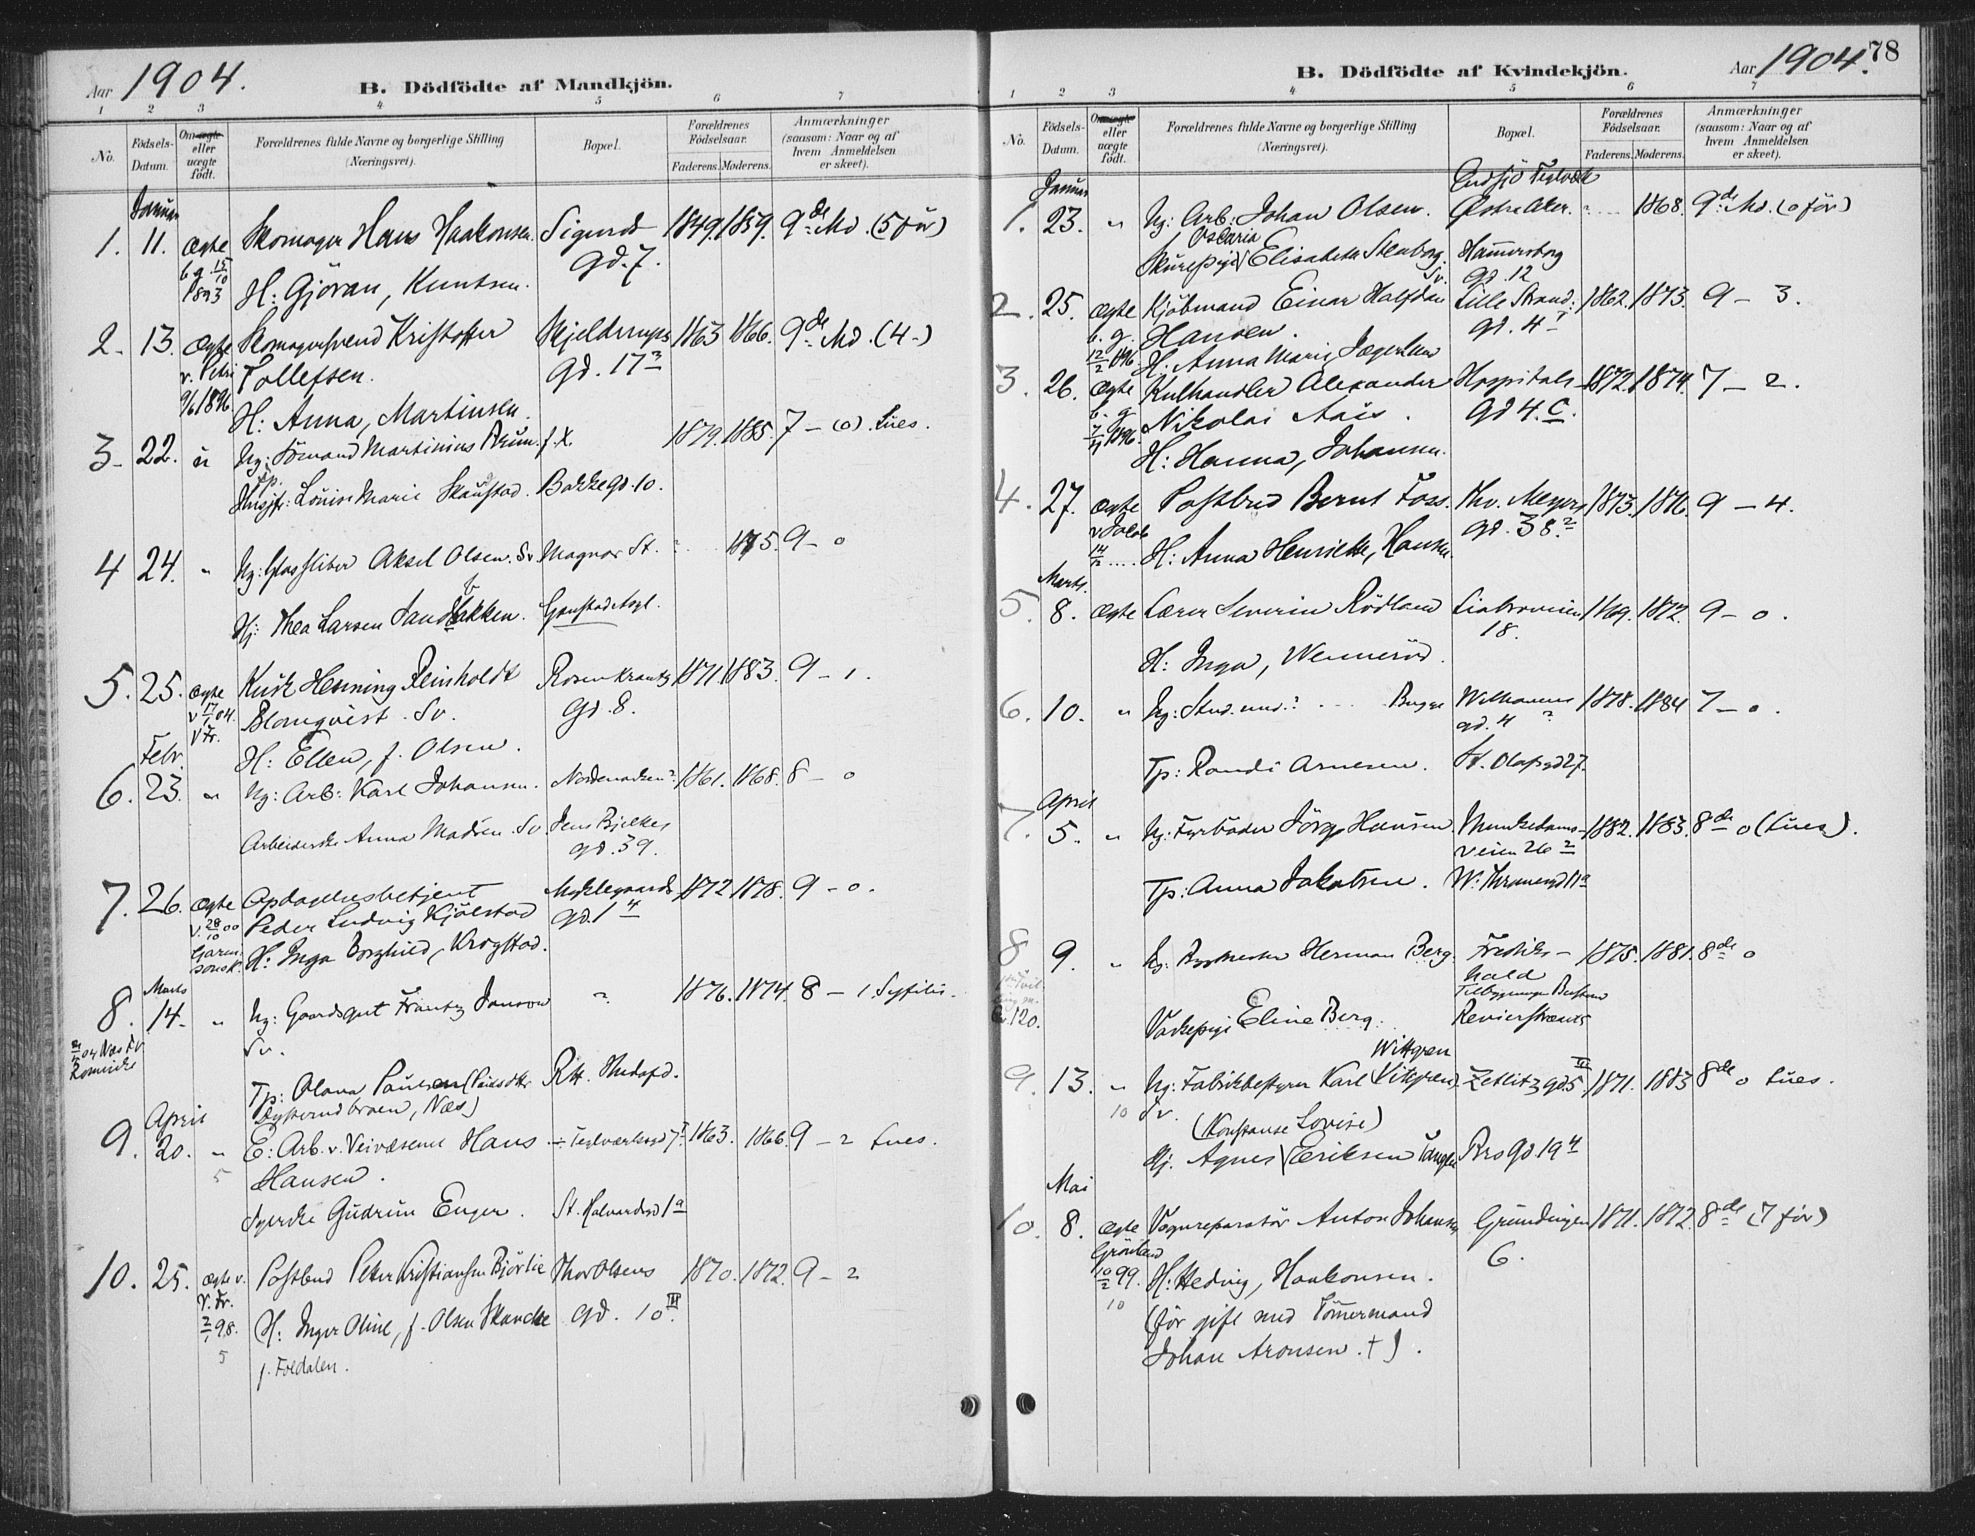 Aar 1904.
B. Dödfödte af Mandkjön.
1 2 3 4 5 6 7
No.
Födsels-Datum.
Om ægte eller uægte født.
Forældrenes fulde Navne og borgerlige Stilling (Næringsvei).
Bopæl.
Forældrenes Födselsaar.
Faderens. Moderens.
Anmærkninger (saasom: Naar og af hvem Anmeldelsen er skeet).
Januar
1. 11. ægte Skomager Hans Haakonsen. Sigurds 1849. 1859. 9de Md. (5 før)
b. g. 15/10 gd. 7.
1893 H: Gjöran, Knutsen.
2. 13. ægte Skomagersvend Kristoffer Skjeldrups 1863 1866. 9de Md. (4-)
v. Petri Tollefsen. gd. 17
9/6 1896 H: Anna, Martinsen.
3. 22. u Ug: Sömand Martinius f. X. 1879. 1885. 7 - (0). Lues.
Husjfr: Louise Marie Skaustad. Bakkegd. 10.
4 24. " Ug: Glassliber Aksel Olsen. Sv Magnor St. 1875. 9 - 0
Hj: Thea Larsen Sandbakken. Gaustad Asyl.
5. 25. ægte Kusk Henning Reinholdt Rosenkrantz 1871. 1883. 9 - 1.
v 17/1 04. Blomqvist. Sv. gd. 8.
V Fr. H: Ellen, f. Olsen.
Febr.
6. 23. " Ug: Arb: Karl Johansen. 1861. 1868. 8 - 0
Arbeiderske Anna Madsen. Sv. Jens Bjelkes
gd. 59.
7. 26. ægte Opdagelsesbetjent Myklegaards 1872 1878. 9 - 0.
v. 28/10 00 Peder Ludvig Kjölstad gd. 1 4
Garnisonsk. H: Inga Borghild, Krogstad.
Marts
8. 14. " Ug: Gaardsgut Frantz Jansson ? 1876. 1874. 8 - 1. Syfilis.
Sv.
Tp: Olava Paulsen Rtt.
April
9. 20. " E: Arb. v. Veivæsenet Hans Teglverksgd 7 1863. 1866. 9 - 2 Lues.
5 Hansen.
Syerske Gudrun Enger. St. Halvardsgd 1 a
10. 25. ægte v. Postbud Peter Kristiansen Bjørlie Thor Olsens 1870. 1872. 9 - 2
V. Fr. gd. 10 III.
2/1 98. H: Inger Oline, f. Olsen Skancke
5 f. Foldalen.
Aar 1904. 78
B. Dödfödte af Kvindekjön.
1 2 3 4 5 6 7
No.
Födsels-Datum.
Om ægte eller uægte født.
Forældrenes fulde Navne og borgerlige Stilling (Næringsvei).
Bopæl.
Forældrenes Födselsaar.
Faderens. Moderens.
Anmærkninger (saasom: Naar og af hvem Anmeldelsen er skeet).
Januar Teglværk
1. 23. " Ug: Arb: Johan Olsen. Østre Aker. 1868. 9de Md. (0 før)
Oscaria
Skurepige Elisabeth Stenborg. Hammersborg
Sv. gd. 12
2. 25. ægte Kjöbmand Einar Halfdan Lille Strand- 1862. 1873. 9 - 3.
b. g. Hansen. gd. 4
12/2 1896. H: Anna Marie
3. 26. ægte Kulhandler Alexander Hospitals- 1872. 1874. 7 - 2.
b. g Nikolai Aas. gd 4. C.
1896. H: Hanna, Johansen.
4. 27. ægte Postbud Bernt Foss. Thv. Meyers 1873. 1876. 9 - 4.
v Jakob gd. 38. 2
H: Anna Henriette, Hansen
Marts.
5. 8. ægte Lærer Severin Rödland Liabroveien 1869. 1872. 9 - 0.
18.
H: Inga, Wenneröd.
6. 10. " Ug: Stud. med.? Bugge Welhavens 1878. 1884 7 - 0.
gd. 4 ?
Tp: Randi Arnesen. St. Olafsgd 27.
April
7. 5. " Ug: Fyrböder Jörg. Hansen Munkedams- 1882. 1883. 8de 0 (Lues).
veien 26 2
Tp: Anna Jakobsen. W. Thranesgd 11 a
8 9. " Ug: Herman Berg. Fredriks- 1875. 1881. 8de 0
hald
120. Vaskepige Eline Berg. Revierstrædet
Wittgren
9. 13. " Ug: Fabrikbestyrer Karl (Vitgren) Zetlitzgd. 5 1871. 1883 8de 0 Lues.
10 Sv.
(Konstanse Lovise)
Hj. Agnes Eriksen Tangen Rrsgd. 19 4
Mai
10. 8. ægte Vognreparatør Anton Johansen Gründingen 1871. 1872. 8de (7 før)
Grönland 6.
10/2 99. H: Hedvig, Haakonsen.
10 (før gift med Tömermand
Johan Aronsen. †).